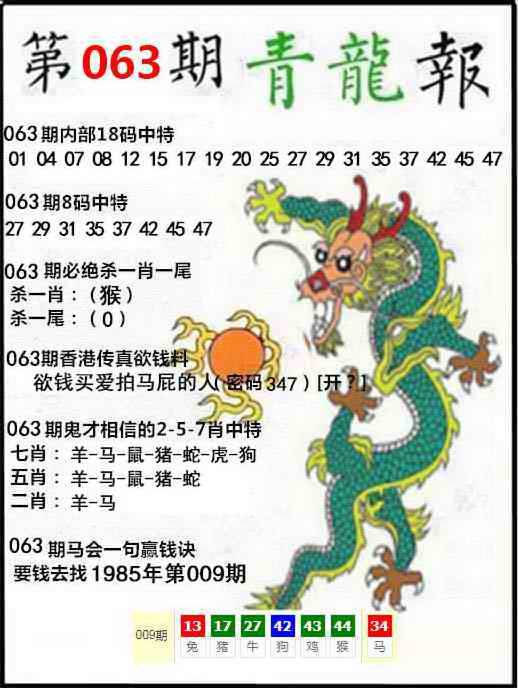 第063期青龍報
063期内部18码中特
01 04 07 08 12 15 17 19 20 25 27 29 31 35 37 42 45 47
063期8码中特
27 29 31 35 37 42 45 47
063 期必绝杀一肖一尾
杀一肖：（猴）
杀一尾：（0）
063期香港传真欲钱料
欲钱买爱拍马屁的人（密码347）[开？]
063期鬼才相信的2-5-7肖中特
七肖：羊-马-鼠-猪-蛇-虎-狗
五肖：羊-马-鼠-猪-蛇
二肖：羊-马
063 期马会一句赢钱诀
要钱去找1985年第009期
009期 13 17 27 42 43 44 34
兔 猪 牛 狗 鸡 猴 马